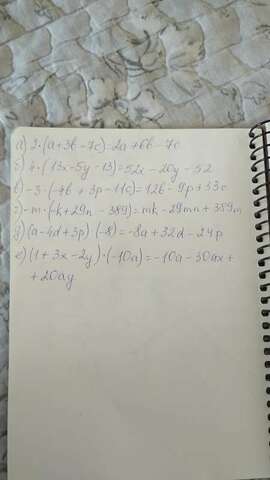 а) 2·(a+3b-7c)=2a+6b-7c
б) 4·(13x-5y-13)=52x-20y-52
в) -3·(-4b+3p-11c)=12b-9p+33c
г) -m·(-k+29n-389)=mk-29mn+389m
д) (a-4d+3p)·(-8)=-8a+32d-24p
е) (1+3x-2y)·(-10a)=-10a-30ax+
+20ay